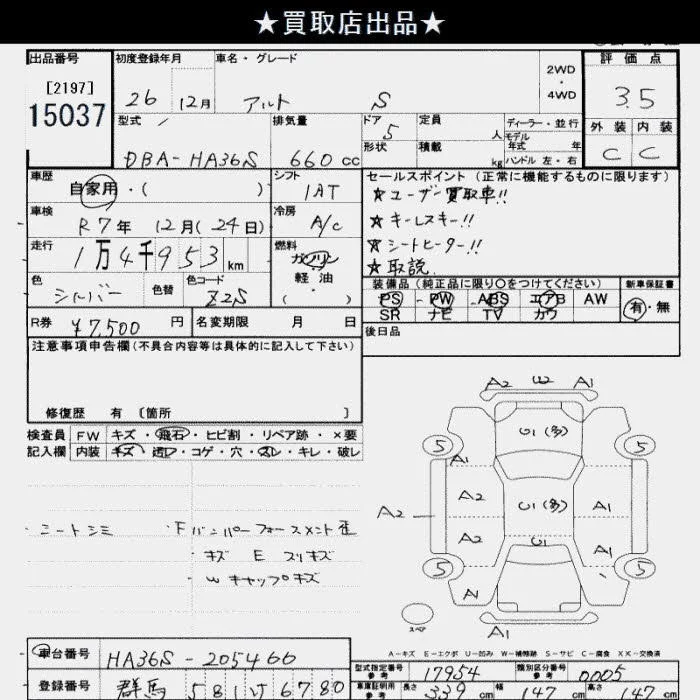 ★買取店出品★
出品番号
[2197]
15037
初度登録年月
26 12月
車名・グレード
アルト S
2WD
・
4WD
評価点
3.5
外装 内装
C C
型式
DBA-HA36S
排気量
660 cc
ドア
5
形状
定員
人
積載
kg
ディーラー・並行
モデル
年式 年
ハンドル 左・右
車歴
自家用・( )
シフト
1AT
車検
R7年 12月(24日)
冷房
A/C
走行
1万4千953 km
燃料
ガソリン
軽油
・
( )
色
シルバー
色替
色コード
Z2S
R券
¥7,500 円
名変期限 月 日
セールスポイント(正常に機能するものに限ります)
★ユーザー買取車!!
★キーレスキー!!
★シートヒーター!!
★取説
装備品(純正品に限り○をつけてください)
新車保証書
PS PW ABS エアB AW
SR ナビ TV カワ
有・無
後日品
注意事項申告欄(不具合内容等は具体的に記入して下さい)
修復歴 有 [箇所 ]
検査員
記入欄
FW キズ・飛石・ヒビ割・リペア跡・×要
内装 キズ・コゲ・穴・スレ・キレ・破レ
・シートシミ
・Fバンパーフォースメント歪
キズ E スリキズ
・Wキャップキズ
A2 U2 A1
U1(多)
5 5
A1
A2
A2
A2
U1(多)
A1
U1
A1
5 5
A1
スペア
A1
A-キズ E-エクボ U-凹み W-補修跡 S-サビ C-腐食 XX-交換済
車台番号
HA36S-205466
登録番号
群馬 581 い 6780
型式指定番号
参考
17954
類別区分番号
参考
0005
車庫証明用
参考
長さ
339 cm
幅
147 cm
高さ
147 cm